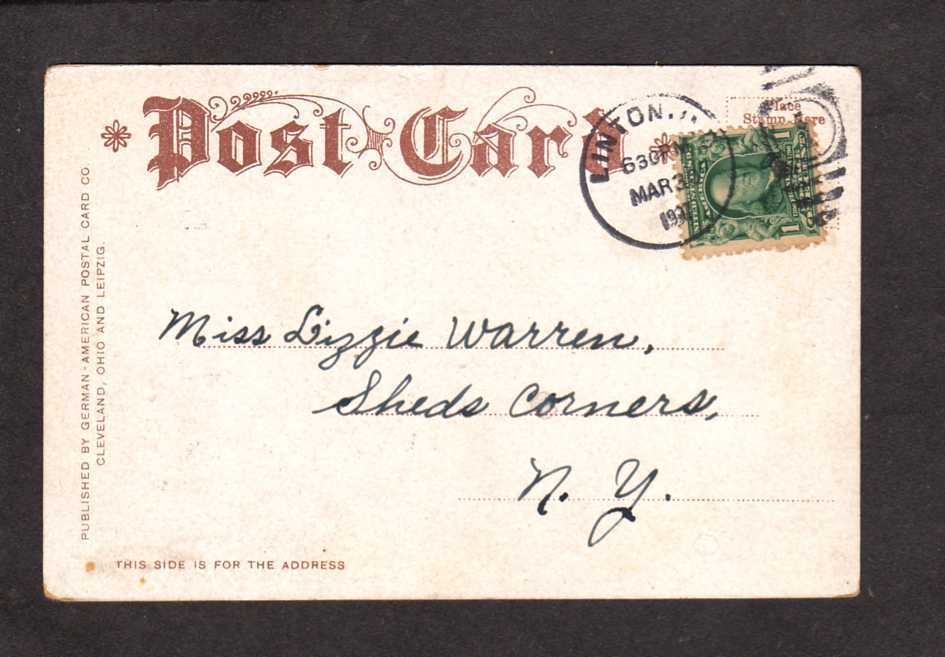 Post Card
Place
Stamp Here
LINTON
630PM
MAR 3
1
1
Miss Lizzie Warren,
Sheds Corners,
N. Y.
PUBLISHED BY GERMAN-AMERICAN POSTAL CARD CO
CLEVELAND, OHIO AND LEIPZIG.
THIS SIDE IS FOR THE ADDRESS